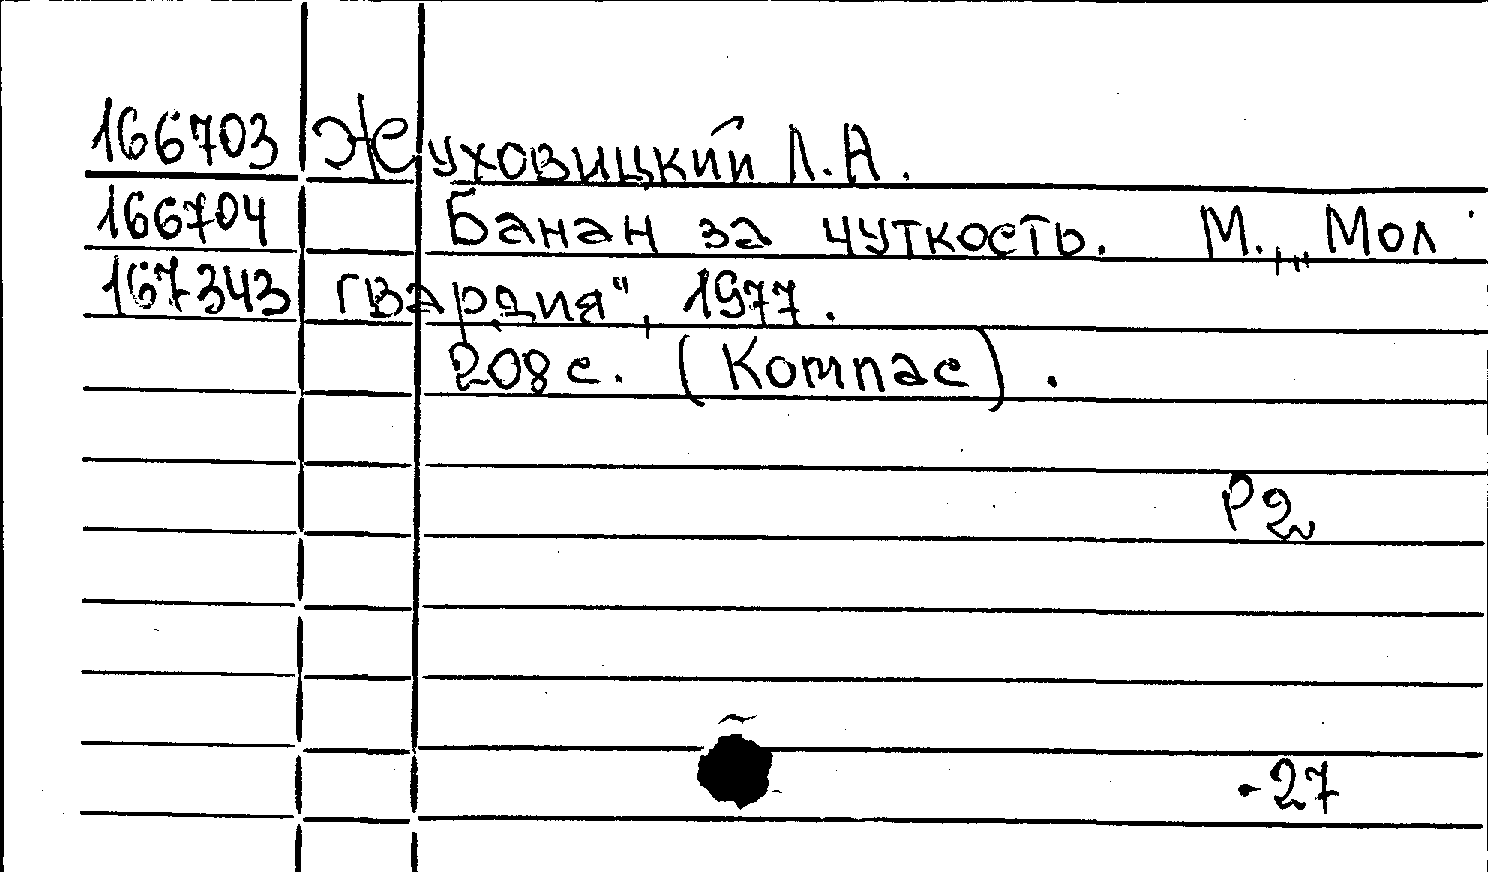 166703 Жуховицкий Л.А.
166704 Банан за чуткость. М., „Мол
167343 гвардия", 1977.
208 с. (Компас).
Р2
-27